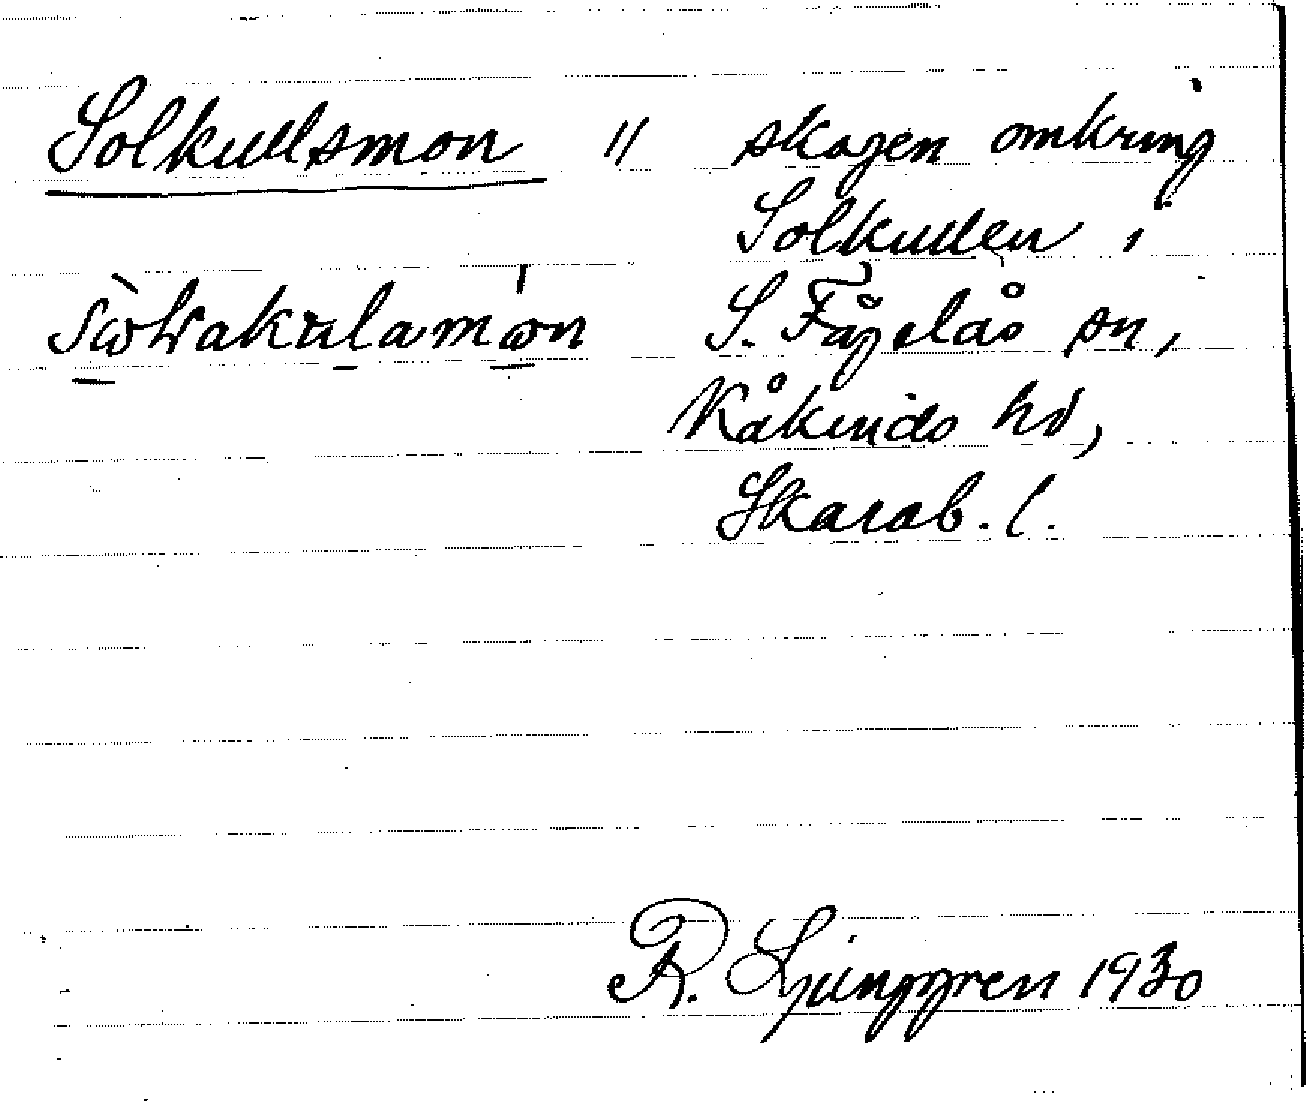 Solkullsmon // skogen omkring
Solkullen i
S. Fågelås sn,
Kåkinds hd,
Skarab. l.
R. Ljunggren 1930